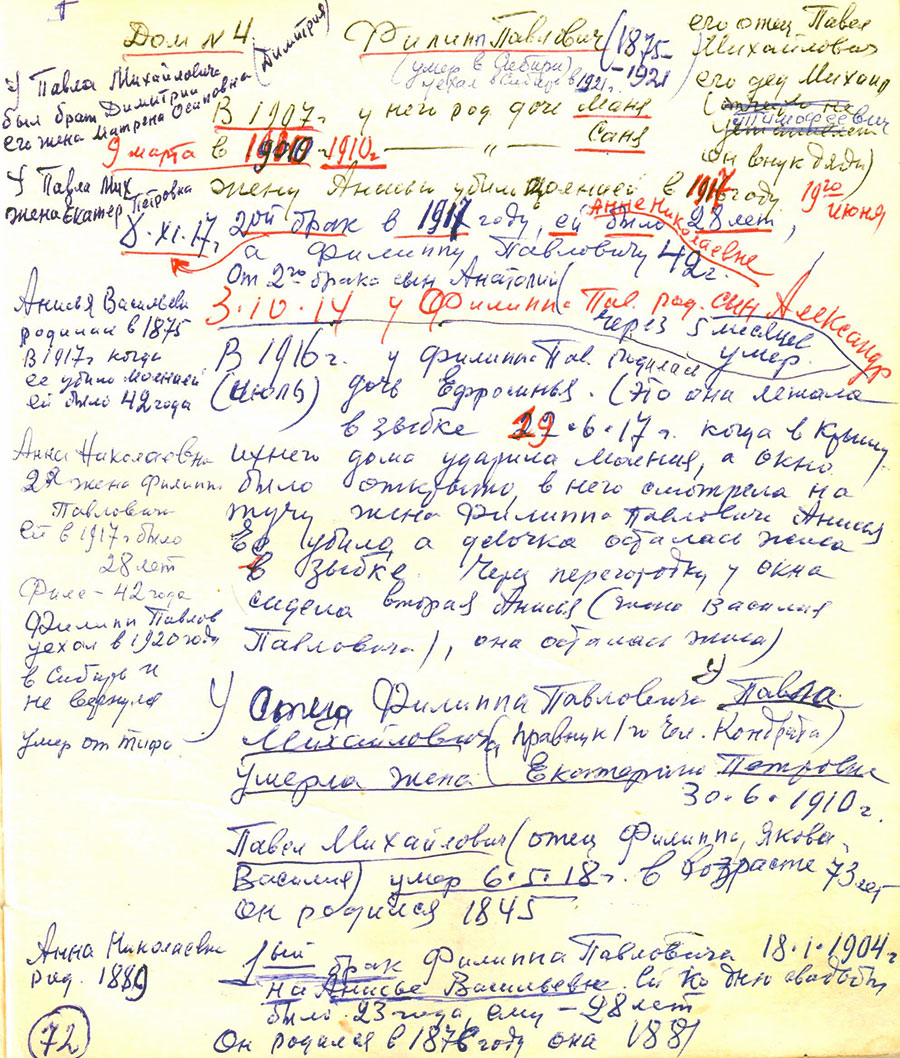 Дом № 4
(Димитрия)
Филипп Павлович (1875-
-1921)
(умер в Сибири)
уехал в Сибирь в 1921 г.
его отец Павел
Михайлович
его дед Михаил
Тимофеевич
он внук дяди)
У Павла Михайловича
был брат Димитрий
его жена Матрена Осиповна
В 1907 г. у него род. дочь Маня
9 марта в 1910 1910 г. —— „ —— Саня
У Павла Мих
жена Екатер Петровна
жену Анисью убило молнией в 1917 году 19го июня
8.XI.17 г. 2ой брак в 1917 году, ей было 28 лет,
Анне Николаевне
а Филиппу Павловичу 42 г.
От 2го брака сын Анатолий
3.10.14 у Филиппа Пав. род. сын Александр
через 5 месяцев
умер.
Анисья Васильевн
родилась в 1875
В 1917 г когда
ее убило молнией
ей было 42 года
В 1916 г. у Филиппа Пав. родилась
(июль) дочь Ефросинья. (Это она лежала
в зыбке 19.6.17 г. когда в крышу
ихнего дома ударила молния, а окно
было открыто, в него смотрела на
тучу жена Филиппа Павловича Анисья
Её убило, а девочка осталась жива
в зыбке. Через перегородку у окна
сидела вторая Анисья (жена Василия
Павловича), она осталась жива)
Анна Николаевна
2я жена Филиппа
Павловича
ей в 1917 г было
28 лет
Филе - 42 года
Филипп Павлов
уехал в 1920 году
в Сибирь и
не вернулся
умер от тифа
У отца Филиппа Павловича у Павла
Михайловича (правнук 1го Чел. Кондрата)
умерла жена (Екатерина Петровна
30.6.1910 г.
Павел Михайлович (отец Филиппа, Якова,
Василия) умер 6.5.18 г. в возрасте 73 лет
Он родился 1845
Анна Николаевна
род. 1889
1ый брак Филиппа Павловича 18.1.1904 г
на Анисье Васильевне. Ей ко дню свадьбы
было 23 года, ему - 28 лет
Он родился в 1876 году она 1881
72